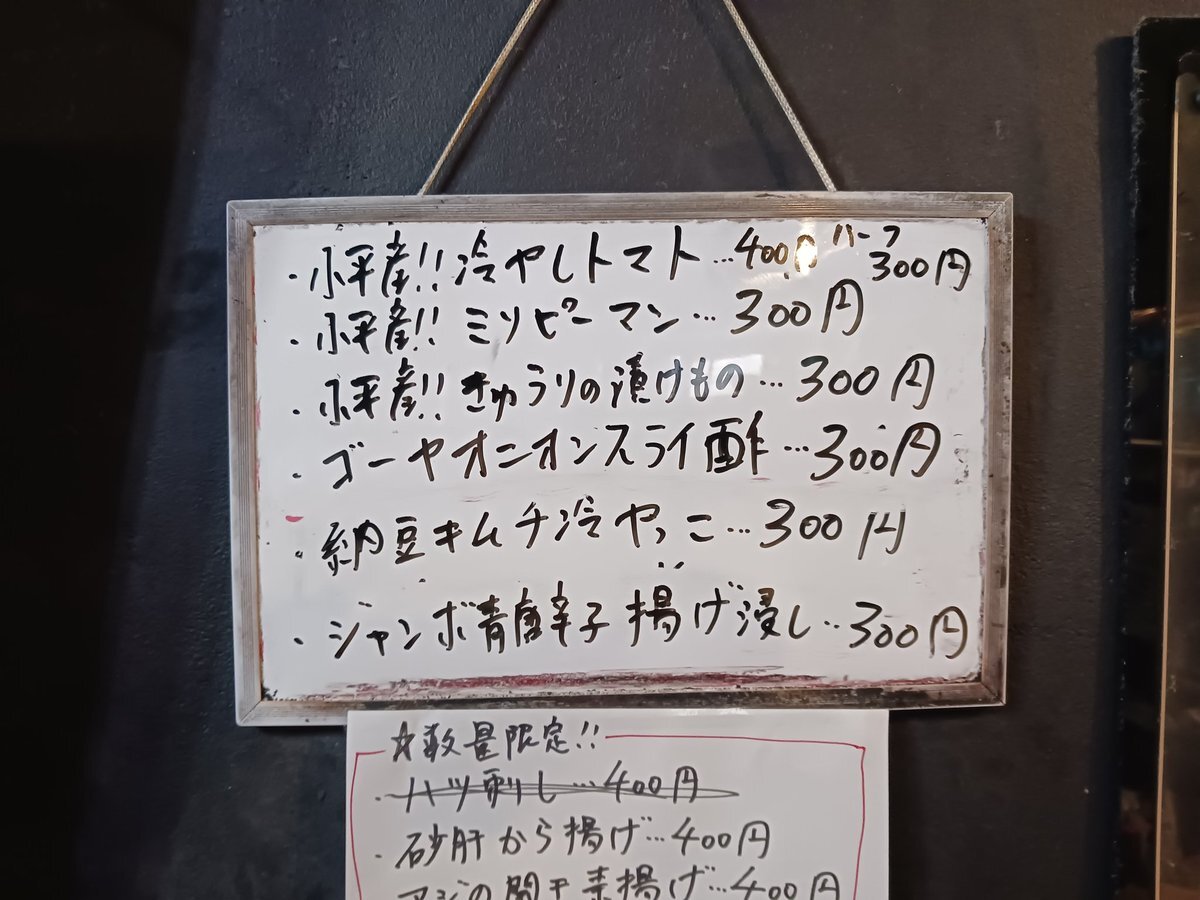 ・小平産!!冷やしトマト…400円 ハーフ300円
・小平産!!ミソピーマン…300円
・小平産!!きゅうりの漬けもの…300円
・ゴーヤオニオンスライ酢…300円
・納豆キムチ冷やっこ…300円
・ジャンボ青唐辛子揚げ浸し…300円
☆数量限定!!
・ハツ刺し…400円
・砂肝から揚げ…400円
アジの開干素揚げ…400円